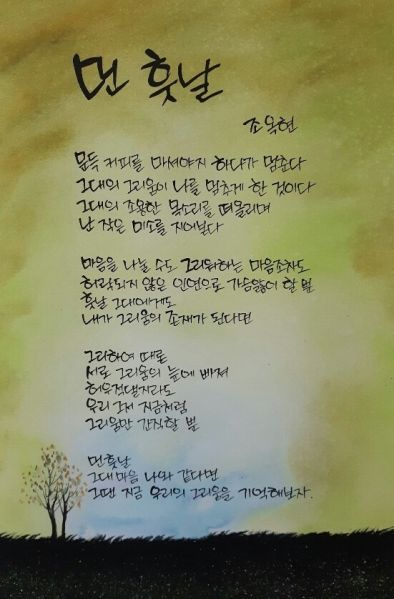 먼 훗날
조옥현
문득 커피를 마셔야지 하다가 멈춘다
그대의 그리움이 나를 멈추게 한 것이다
그대의 조용한 목소리를 떠올리며
난 작은 미소를 지어본다
마음을 나눌 수도 그리워하는 마음조차도
허락되지 않은 인연으로 가슴앓이 할 뿐
훗날 그대에게도
내가 그리움의 존재가 된다면
그리하여 때론
서로 그리움의 늪에 빠져
허우적댈지라도
우리 그저 지금처럼
그리움만 간직할 뿐
먼훗날
그대 마음 나와 같다면
그땐 지금 우리의 그리움을 기억해보자.